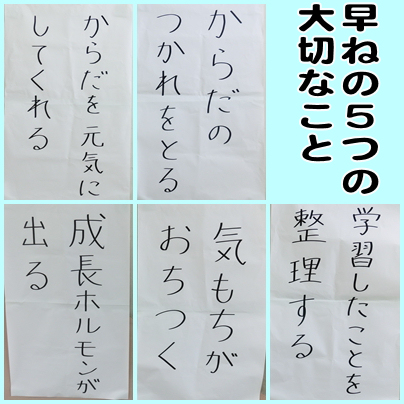 早ねの５つの
大切なこと
からだの
つかれをとる
からだを元気に
してくれる
学習したことを
整理する
気もちが
おちつく
成長ホルモンが
出る